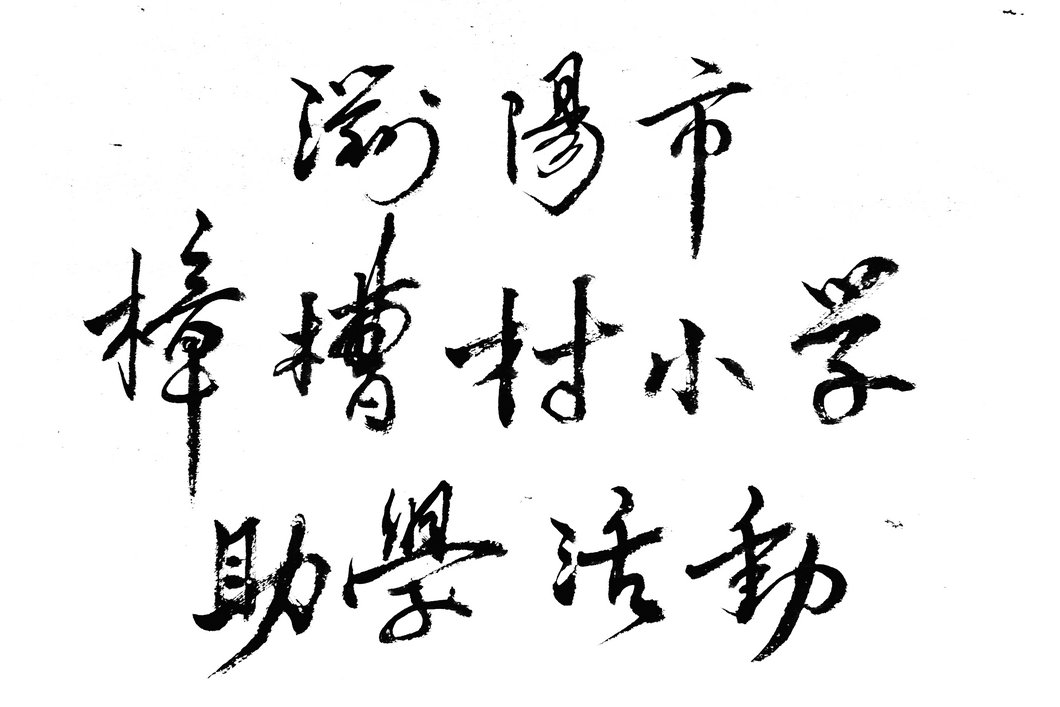 瀏陽市
樟槽村小学
助學活動